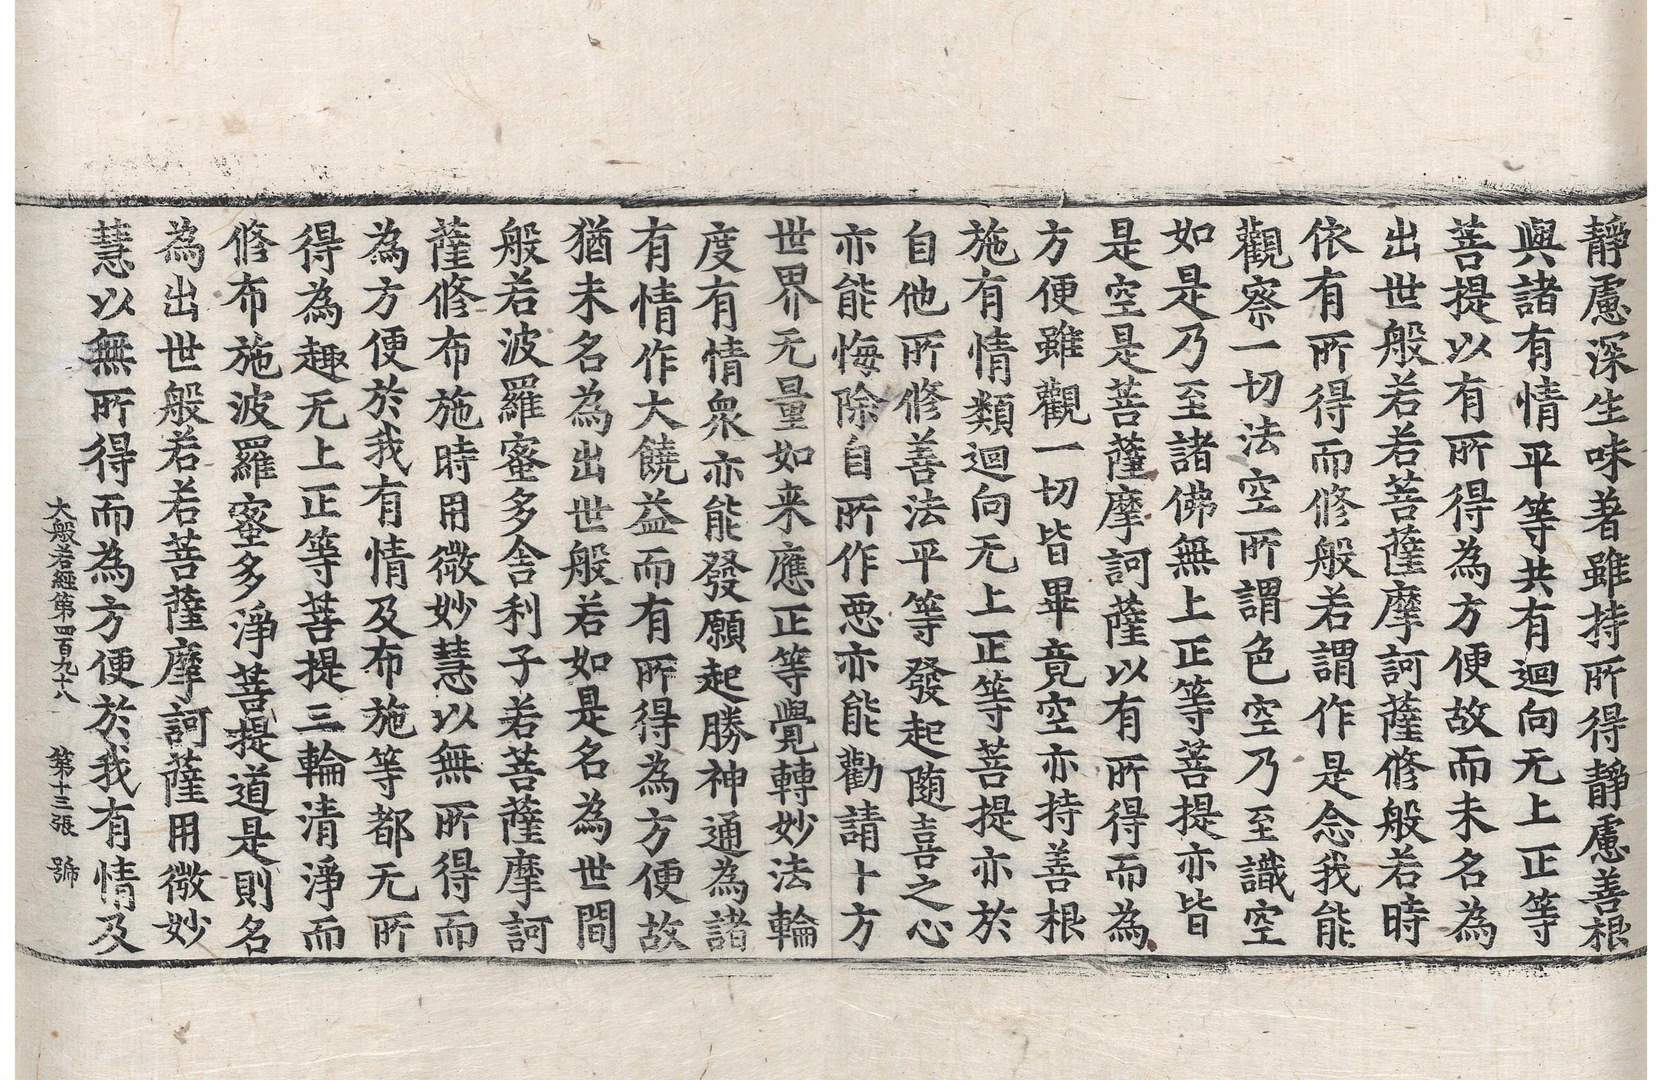 靜慮深生味著雖持所得靜慮善根
與諸有情平等共有迴向无上正等
菩提以有所得為方便故而未名為
出世般若若菩薩摩訶薩修般若時
依有所得而修般若謂作是念我能
觀察一切法空所謂色空乃至識空
如是乃至諸佛無上正等菩提亦皆
是空是菩薩摩訶薩以有所得而為
方便雖觀一切皆畢竟空亦持善根
施有情類迴向无上正等菩提亦於
自他所修善法平等發起随喜之心
亦能悔除自所作惡亦能勸請十方
世界无量如来應正等覺轉妙法輪
度有情衆亦能發願起勝神通為諸
有情作大饒益而有所得為方便故
猶未名為出世般若如是名為世間
般若波羅蜜多舍利子若菩薩摩訶
薩修布施時用微妙慧以無所得而
為方便於我有情及布施等都无所
得為趣无上正等菩提三輪清淨而
修布施波羅蜜多淨菩提道是則名
為出世般若若菩薩摩訶薩用微妙
慧以無所得而為方便於我有情及
大般若經第四百九十八 第十三張 號